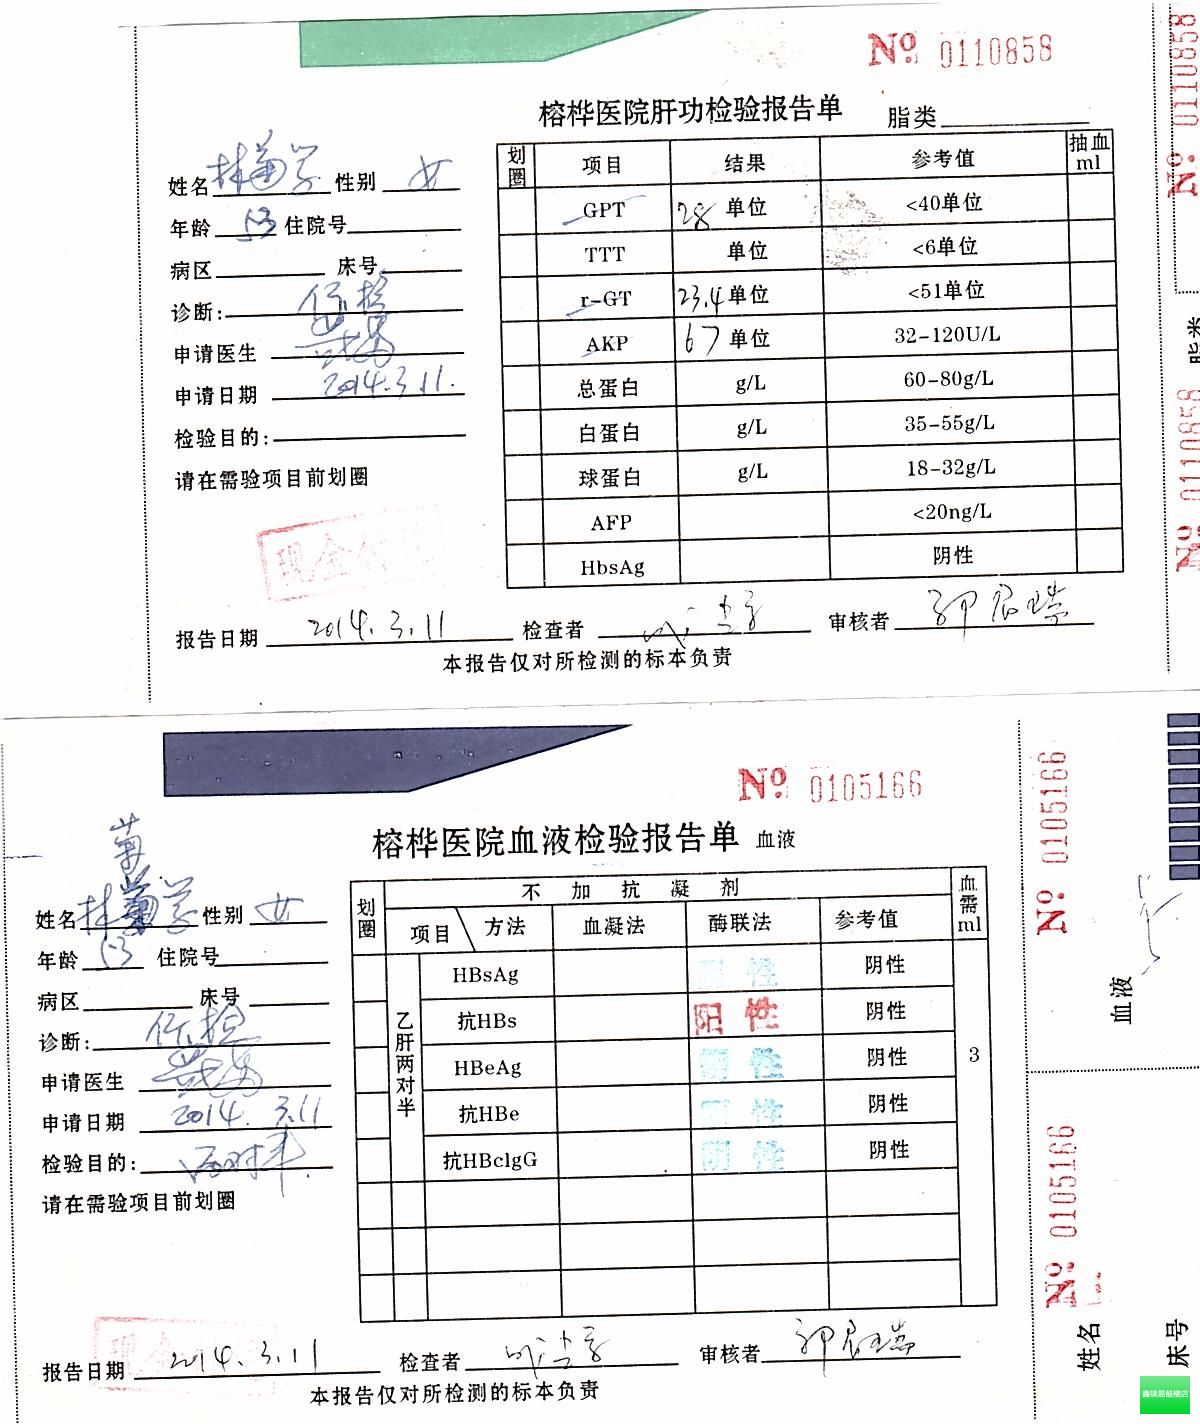 № 0110858
榕桦医院肝功检验报告单 脂类
姓名 林菊芳 性别 女
年龄 53 住院号
病区 床号
诊断: 体检
申请医生
申请日期 2014.3.11.
检验目的:
请在需验项目前划圈
划圈 项目 结果 参考值 抽血ml
GPT 28 单位 <40单位
TTT 单位 <6单位
r-GT 23.4 单位 <51单位
AKP 67 单位 32-120U/L
总蛋白 g/L 60-80g/L
白蛋白 g/L 35-55g/L
球蛋白 g/L 18-32g/L
AFP <20ng/L
HbsAg 阴性
现金付讫
报告日期 2014.3.11 检查者 审核者
本报告仅对所检测的标本负责
№ 0110858
脂类
№ 0110858
№ 0105166
榕桦医院血液检验报告单 血液
菊
姓名 林菊芳 性别 女
年龄 53 住院号
病区 床号
诊断: 体检
申请医生
申请日期 2014.3.11
检验目的: 两对半
请在需验项目前划圈
划圈 不加抗凝剂 血需ml
项目 方法 血凝法 酶联法 参考值
乙肝两对半
HBsAg 阴性 阴性
抗HBs 阳性 阴性
HBeAg 阴性 阴性 3
抗HBe 阴性 阴性
抗HBclgG 阴性 阴性
现金
报告日期 2014.3.11 检查者 审核者
本报告仅对所检测的标本负责
№ 0105166
血液
№ 0105166
姓名
床号
鑫锦易鼓楼店